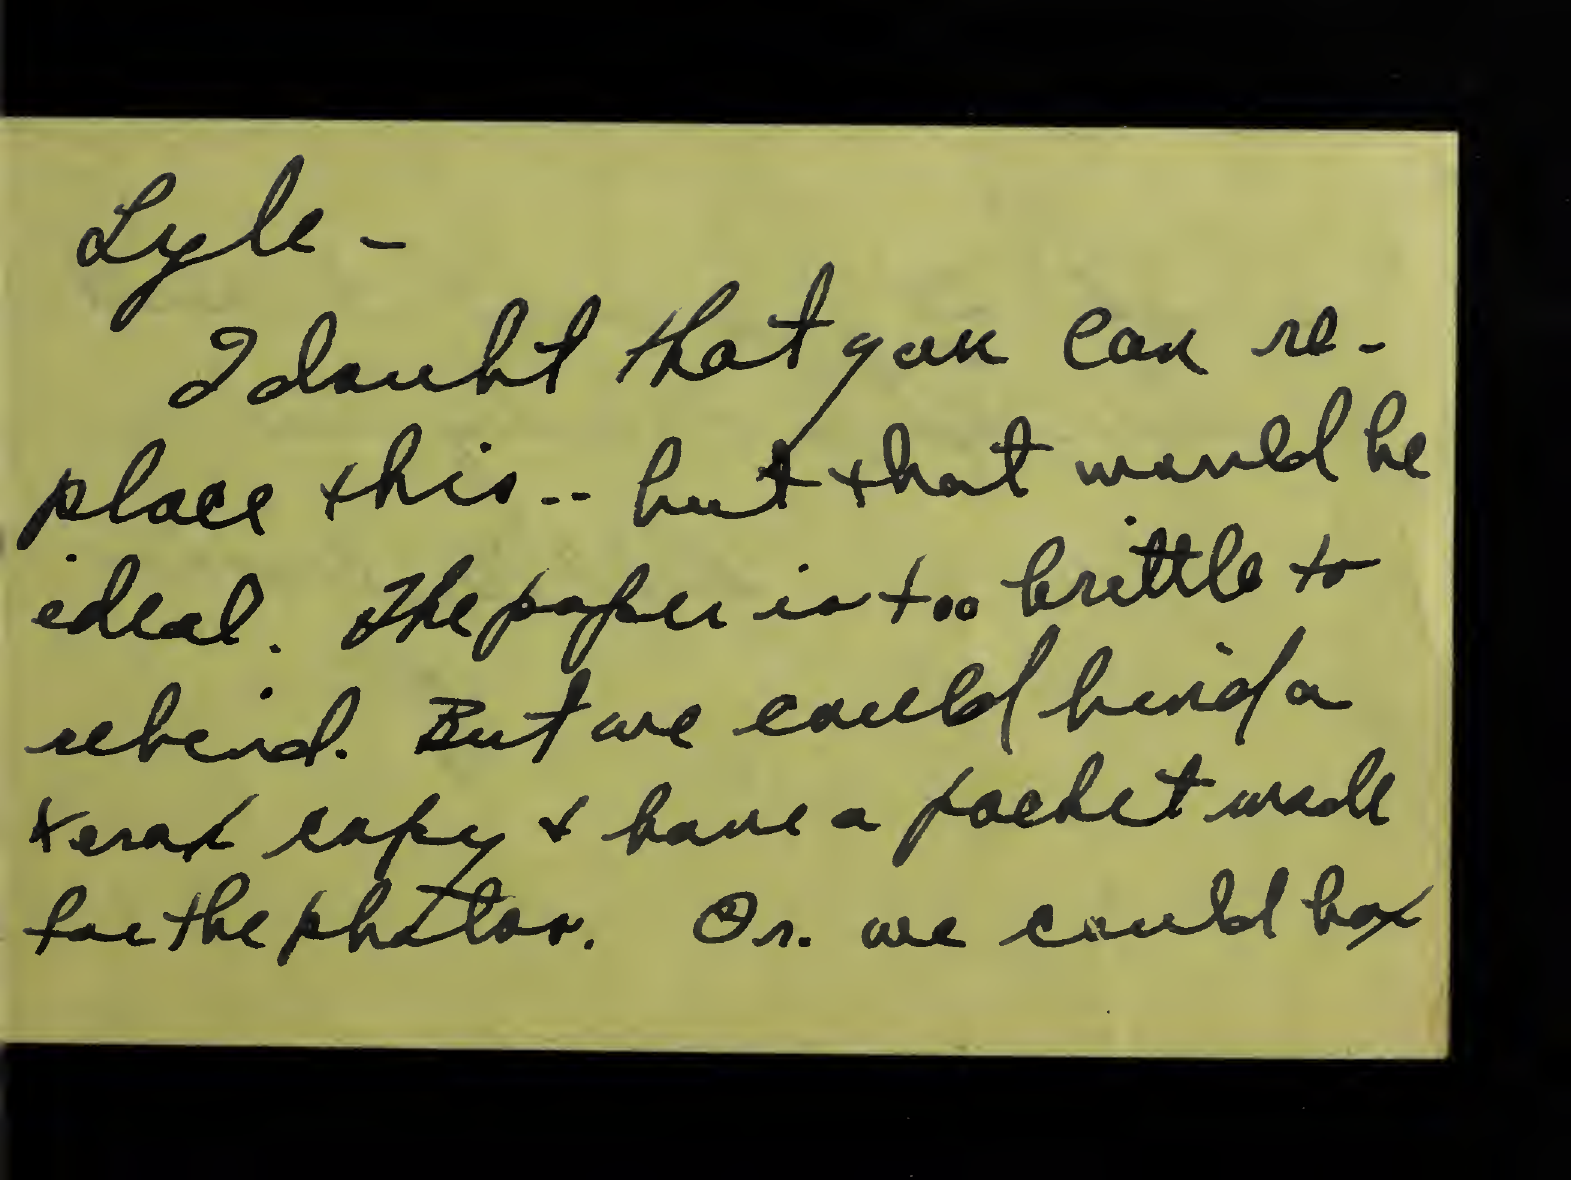 Lyle -
I doubt that you can re-
place this -- but that would be
ideal. The paper is too brittle to
rebind. But we could bind a
xerox copy & have a pocket made
for the photos. Or. we could box